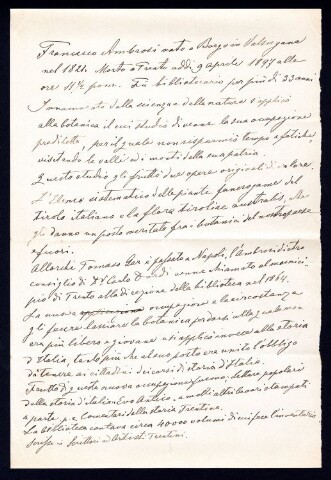 Francesco Ambrosi nato a Borgo in Valsugana
nel 1821. Morto a Trento addì 9 aprile 1897 alle
ore 11½ pom. Fu bibliotecario per più di 33 anni
Innamorato della scienza e della natura s'applicò
alla botanica il cui studio divenne la sua occupazione
prediletta, per il quale non risparmiò tempo e fatiche,
visitando le valli e i monti della sua patria.
Questo studio gli fruttò due opere originali di valore
L'Elenco sistematico delle piante fanerogame del
tirolo italiano e la flora tiroliae australis, che
gli danno un posto meritato fra i botanici del nostro paese
e fuori.
Allorchè Tomaso Gar è passato a Napoli, l'Ambrosi dietro
consiglio di D. Carlo venne chiamato al municipio
pio di Trento alla direzione della biblioteca nel 1864.
La nuova occupazione e la circostanza
gli fecero lasciare la botanica per darsi alla quale non
era più libero e giovane e si applicò invece alla storia
d'Italia, tanto più che al suo posto era unito l'obbligo
di tenere ai cittadini dei corsi di storia d'Italia.
Frutto di questa nuova occupazione furono: letture popolari
della storia d'italia Evo Antico, e molti altri lavori stampati
a parte, p.e. Comentari della storia Trentina.
La biblioteca contava circa 40000 volumi di cui fece l'inventario
Scrisse: Scrittori ed Artisti Trentini.